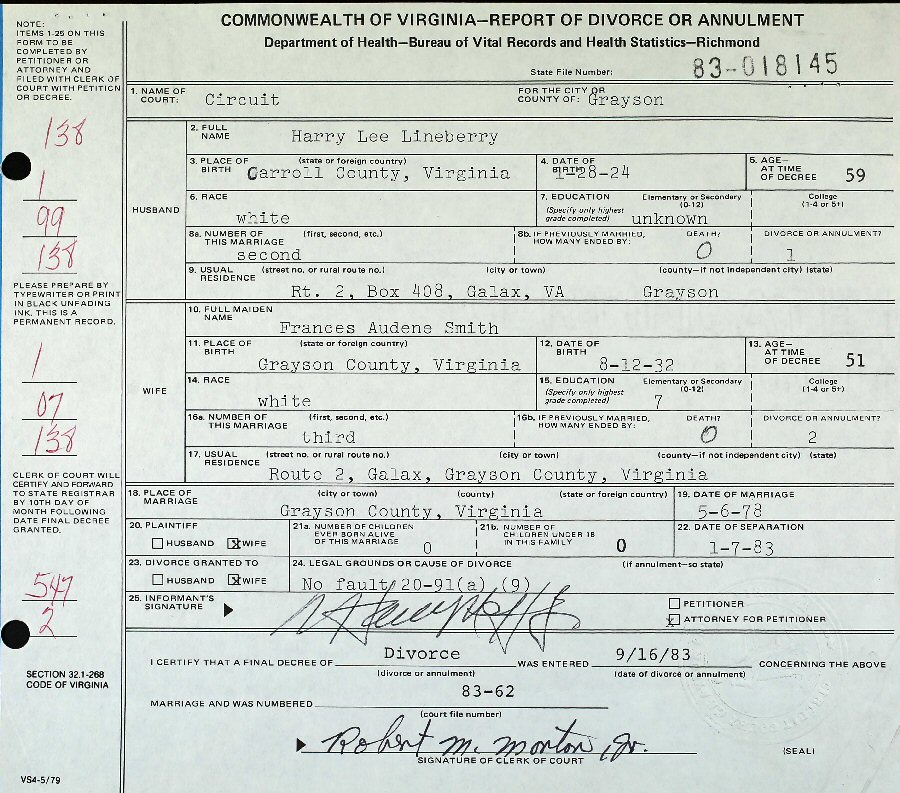 COMMONWEALTH OF VIRGINIA—REPORT OF DIVORCE OR ANNULMENT
Department of Health—Bureau of Vital Records and Health Statistics—Richmond
State File Number: 83-018145
NOTE:
ITEMS 1-25 ON THIS
FORM TO BE
COMPLETED BY
PETITIONER OR
ATTORNEY AND
FILED WITH CLERK OF
COURT WITH PETITION
OR DECREE.
138
1
99
138
PLEASE PREPARE BY
TYPEWRITER OR PRINT
IN BLACK UNFADING
INK. THIS IS A
PERMANENT RECORD.
1
07
138
CLERK OF COURT WILL
CERTIFY AND FORWARD
TO STATE REGISTRAR
BY 10TH DAY OF
MONTH FOLLOWING
DATE FINAL DECREE
GRANTED.
547
2
SECTION 32.1-268
CODE OF VIRGINIA
VS4-5/79
1. NAME OF COURT: Circuit FOR THE CITY OR COUNTY OF: Grayson
HUSBAND
2. FULL NAME Harry Lee Lineberry
3. PLACE OF BIRTH (state or foreign country) Carroll County, Virginia
4. DATE OF BIRTH 1-28-24
5. AGE— AT TIME OF DECREE 59
6. RACE white
7. EDUCATION (Specify only highest grade completed) Elementary or Secondary (0-12) unknown College (1-4 or 5+)
8a. NUMBER OF THIS MARRIAGE (first, second, etc.) second
8b. IF PREVIOUSLY MARRIED, HOW MANY ENDED BY: DEATH? 0 DIVORCE OR ANNULMENT? 1
9. USUAL RESIDENCE (street no. or rural route no.) (city or town) (county—if not independent city) (state)
Rt. 2, Box 408, Galax, VA Grayson
WIFE
10. FULL MAIDEN NAME Frances Audene Smith
11. PLACE OF BIRTH (state or foreign country) Grayson County, Virginia
12. DATE OF BIRTH 8-12-32
13. AGE— AT TIME OF DECREE 51
14. RACE white
15. EDUCATION (Specify only highest grade completed) Elementary or Secondary (0-12) 7 College (1-4 or 5+)
16a. NUMBER OF THIS MARRIAGE (first, second, etc.) third
16b. IF PREVIOUSLY MARRIED, HOW MANY ENDED BY: DEATH? 0 DIVORCE OR ANNULMENT? 2
17. USUAL RESIDENCE (street no. or rural route no.) (city or town) (county—if not independent city) (state)
Route 2, Galax, Grayson County, Virginia
18. PLACE OF MARRIAGE (city or town) (county) (state or foreign country) Grayson County, Virginia
19. DATE OF MARRIAGE 5-6-78
20. PLAINTIFF HUSBAND X WIFE
21a. NUMBER OF CHILDREN EVER BORN ALIVE OF THIS MARRIAGE 0
21b. NUMBER OF CHILDREN UNDER 18 IN THIS FAMILY 0
22. DATE OF SEPARATION 1-7-83
23. DIVORCE GRANTED TO HUSBAND X WIFE
24. LEGAL GROUNDS OR CAUSE OF DIVORCE (if annulment—so state)
No fault/20-91(a),(9)
25. INFORMANT'S SIGNATURE
PETITIONER
X ATTORNEY FOR PETITIONER
I CERTIFY THAT A FINAL DECREE OF Divorce WAS ENTERED 9/16/83 CONCERNING THE ABOVE
(divorce or annulment) (date of divorce or annulment)
MARRIAGE AND WAS NUMBERED 83-62
(court file number)
Robert M. Morton, Jr.
SIGNATURE OF CLERK OF COURT
(SEAL)